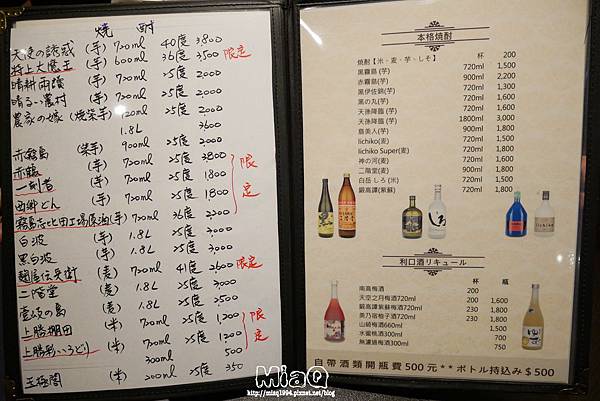 燒 酎
天使の誘惑 (芋) 720ml 40度 3,800
特上大魔王 (芋) 600ml 36度 3,500 限定
晴耕雨讀 (芋) 720ml 25度 2,000
晴るい農村 (芋) 720ml 25度 2,000
農家の嫁 (燒芋) 720ml 25度 2,000
1.8L 3,600
赤霧島 (芋) 900ml 25度 2,000
赤藤 (芋) 720ml 25度
一刻者 (芋) 720ml 25度 1,800
西郷どん (芋) 720ml 25度 1,800
限定
(芋) 720ml 36度 2,200
白波 (芋) 1.8L 25度 3,000
黑白波 (芋) 1.8L 25度 3,000
麹屋伝兵衛 (麦) 720ml 41度 2,600 限定
二階堂 (麦) 1.8L 25度 3,000
壹岐の島 (麦) 1.8L 25度 2,500
上勝棚田 (米) 720ml 25度 1,200
上勝彩いろどり (米) 720ml 25度 1,200
限定
300ml 500
(米) 200ml 25度 350
本格焼酎
杯 200
焼酎【米、麦、芋、しそ】 720ml 1,500
黒霧島 (芋) 900ml 2,200
赤霧島(芋) 900ml 1,300
黒伊佐錦(芋) 720ml 1,500
黒の丸(芋) 720ml 1,500
天孫降臨 (芋) 720ml 1,500
天孫降臨 (芋) 1800ml 3,000
島美人(芋) 900ml 1,800
Iichiko(麦) 720ml 1,500
Iichiko Super(麦) 720ml 1,800
神の河(麦) 720ml 1,800
二階堂(麦) 900ml 1,500
白岳 しろ (米) 720ml 1,800
鍛高譚(紫蘇) 720ml 1,800
利口酒リキュール
杯 瓶
南高梅酒
天空之月梅酒720ml 200 1,600
鍛高譚紫蘇梅酒720ml 200 1,800
美乃宿柚子酒720ml 230 1,800
山崎梅酒660ml 230 1,800
水蜜桃酒300ml 1,500
無濾過梅酒720ml
自帶酒類開瓶費 500 元 * * ボトル持込み $ 500
MiaQ
http://miaq1994.pixnet.net/blog